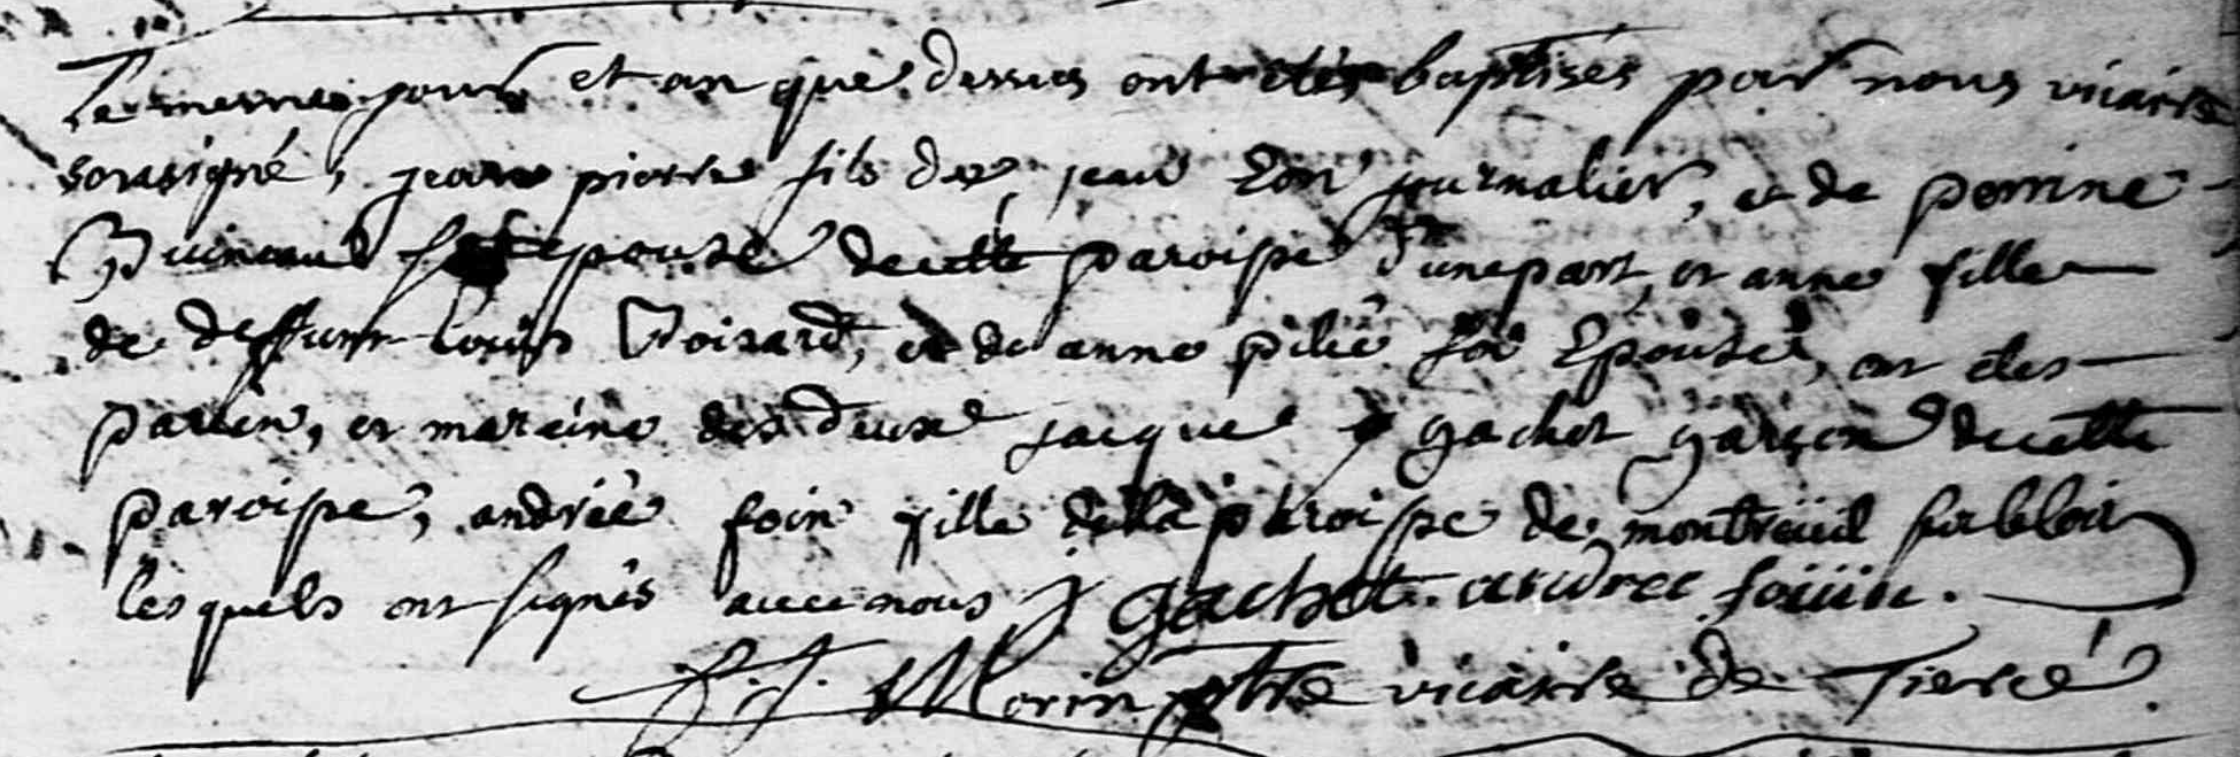 Le mesme jour et an que dessus ont étés baptisés par nous vicaire
soussigné, jean pierre fils de jean Eon journalier, et de perrine
épouse de cette paroisse d'une part, et anne fille
de deffunt Louis Voisard, et de anne pilié son Epouse, ont étés
parein, et mareine des deux jacque gachet garçon de cette
paroisse, andrée foin fille de la paroisse de montreüil sur le loir
lesquels ont signés avec nous j gachet. andree foiiin.
Morin ptre vicaire de Tiercé.